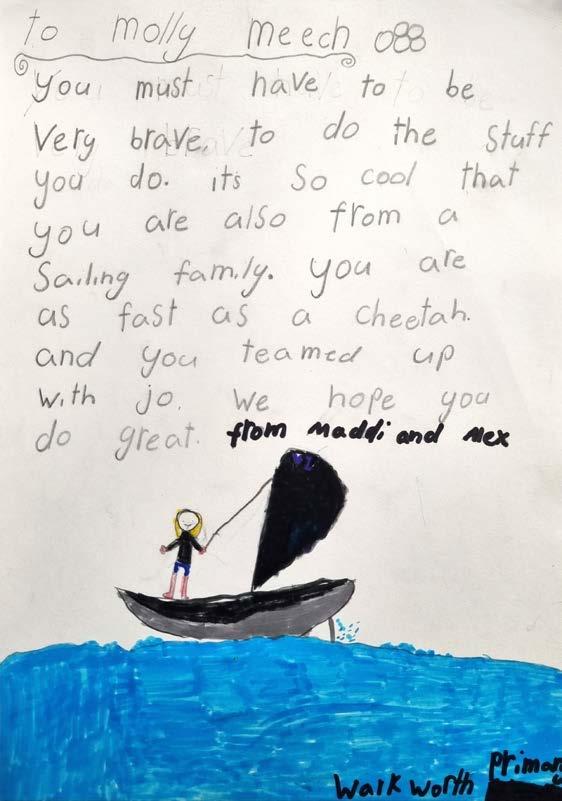 to molly meech 088
You must have to be
Very brave, to do the Stuff
you do. its So cool that
you are also from a
Sailing family. you are
as fast as a cheetah.
and you teamed up
with jo. we hope you
do great. from Maddi and Alex
Warkworth primary